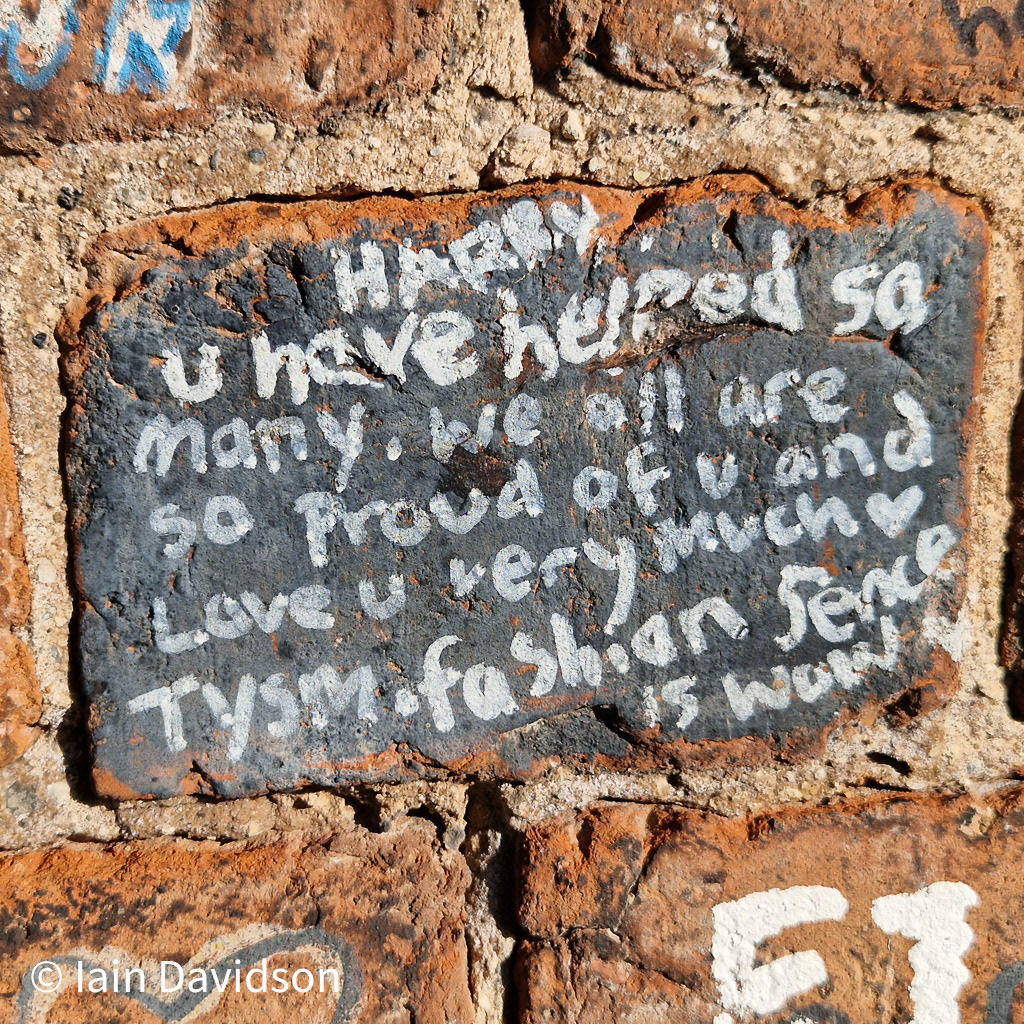 HARRY
u have helped so
many. We all are
so proud of u and
Love u very much ♥
TYSM. fashian sence
is waw
© Iain Davidson